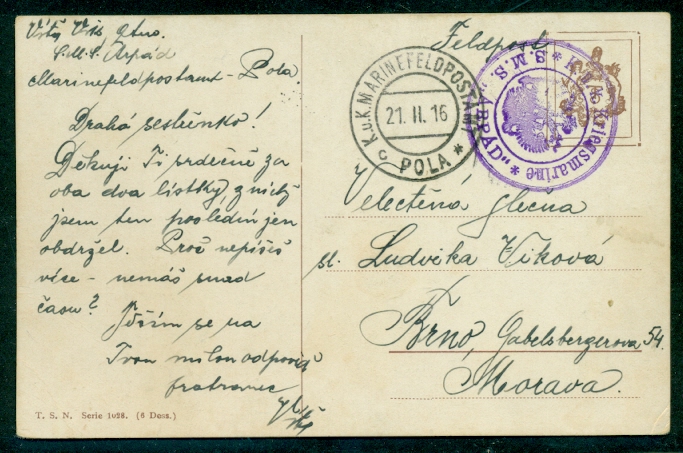 S.M.S. Árpád
Marinefeldpostamt - Pola.
Drahá sestřenko!
Děkuji Ti srdečně za
oba dva lístky, z nichž
jsem ten poslední jen
obdržel. Proč nepíšeš
více - nemáš snad
času?
Těším se na
Tvou milou odpověď
bratranec
T. S. N. Serie 1028. (6 Dess.)
Feldpost
K.u.K. MARINEFELDPOSTAMT
21. II. 16
c POLA *
K.u.K. Kriegsmarine * S.M.S. "ARPAD" *
Velectěná slečna
sl. Ludvika Viková
Brno, Gabelsbergerova 54.
Morava.